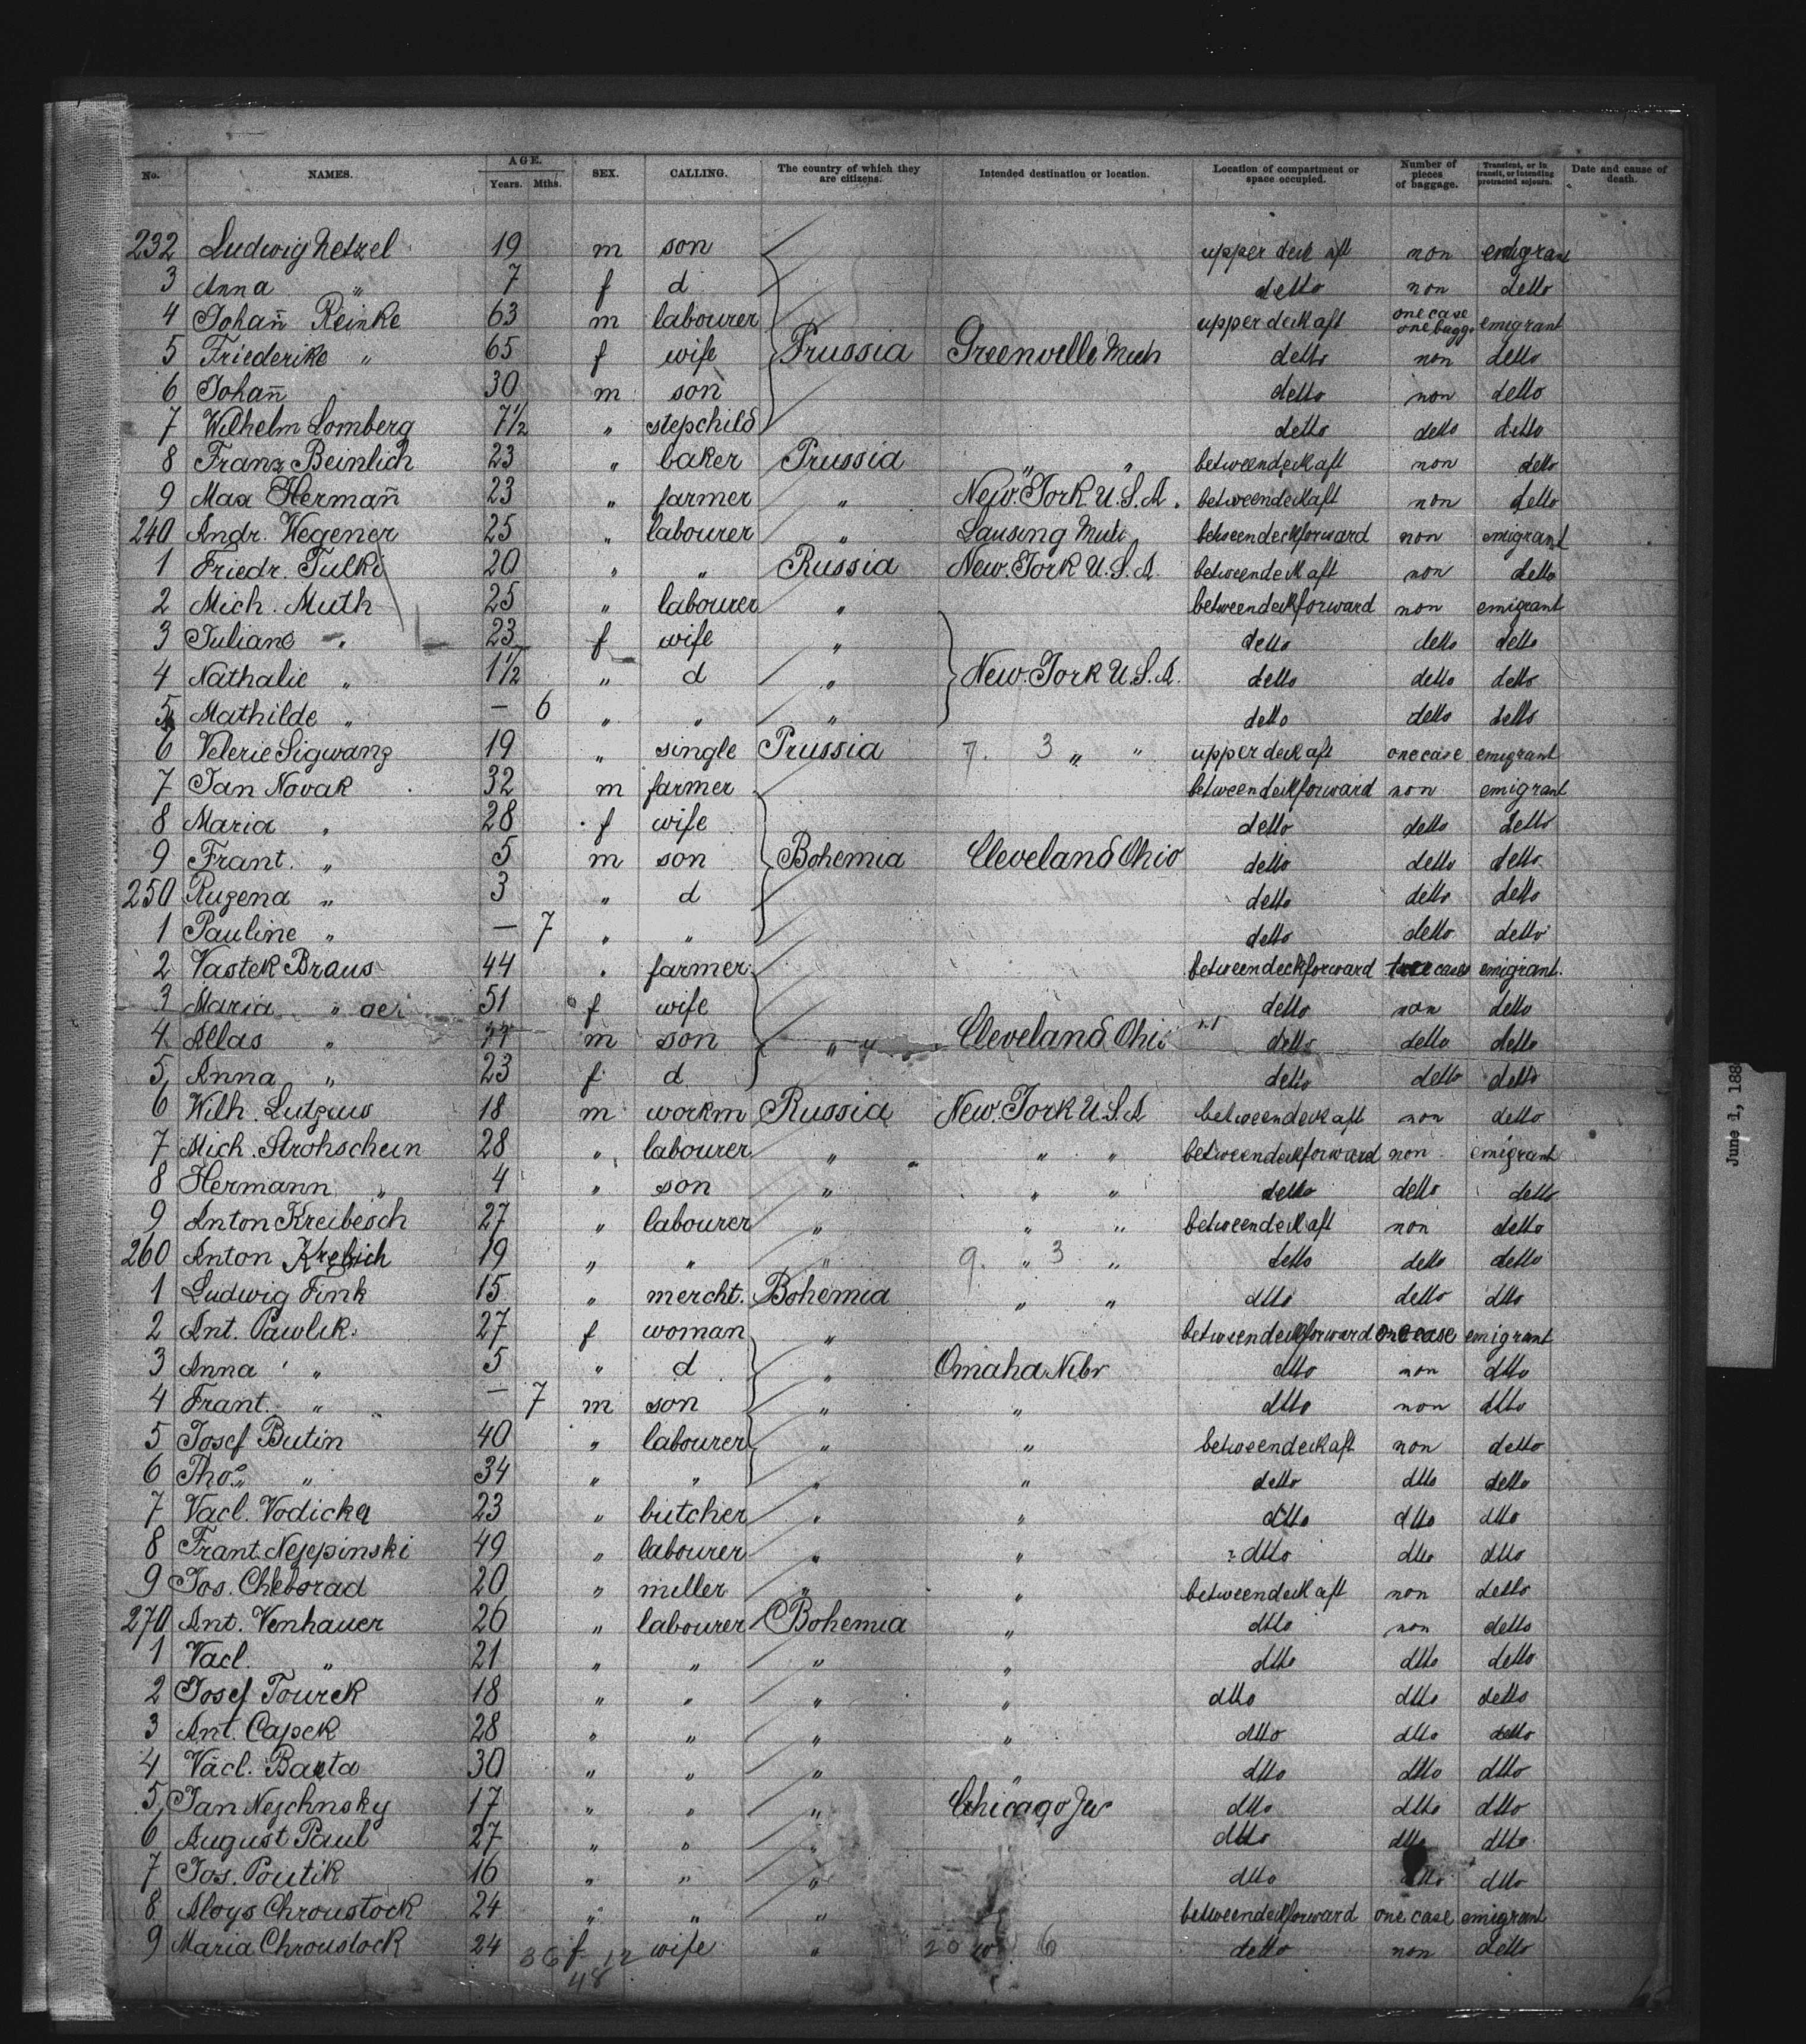 No. NAMES. AGE. Years. Mths. SEX. CALLING. The country of which they are citizens. Intended destination or location. Location of compartment or space occupied. Number of pieces of baggage. Transient, or in transit, or intending protracted sojourn. Date and cause of death.
232 Ludwig Netzel 19 m son upper deck aft non emigrant
3 Anna " 7 f d detto non detto
4 Johañ Reinke 63 m labourer upper deck aft one case one bagg. emigrant
5 Friederike " 65 f wife Prussia Greenville Mich detto non detto
6 Johañ 30 m son detto non detto
7 Wilhelm Lomberg 7½ " stepchild detto detto detto
8 Franz Beinlich 23 " baker Prussia " " betweendeck aft non detto
9 Max Hermañ 23 " farmer " New. York U.S.A. betweendeck aft non detto
240 Andr. Wegener 25 " labourer " Lansing Mich betweendeckforward non emigrant
1 Friedr. Tulki 20 " " Russia New. York U.S.A. betweendeck aft non detto
2 Mich. Muth 25 " labourer " betweendeckforward non emigrant
3 Juliane " 23 f wife " detto detto detto
4 Nathalie " 1½ " d " New. York U.S.A. detto detto detto
5 Mathilde " — 6 " " " detto detto detto
6 Velerie Sigwanz 19 " single Prussia 7. 3 " " upper deck aft one case emigrant
7 Jan Novak 32 m farmer betweendeckforward non emigrant
8 Maria " 28 f wife detto detto detto
9 Frant. " 5 m son Bohemia Cleveland Ohio detto detto detto
250 Ruzena " 3 " d detto detto detto
1 Pauline " — 7 " " detto detto detto
2 Vastek Braus 44 " farmer betweendeckforward cases emigrant.
3 Maria " 51 f wife detto non detto
4 " m son " Cleveland Ohio detto detto detto
5 Anna " 23 f d detto detto detto
6 Wilh. Lutzaus 18 m workm Russia New. York U.S.A betweendeck aft non detto
7 Mich. Strohschein 28 " labourer " " " betweendeckforward non emigrant
8 Hermann " 4 " son " " " detto detto detto
9 Anton Kreibesch 27 " labourer " " " betweendeck aft non detto
260 Anton Krebich 19 " " " 9. " 3 " detto detto detto
1 Ludwig Fink 15 " mercht. Bohemia " " dtto detto dtto
2 Ant. Pawlik. 27 f woman " betweendeckforward one case emigrant
3 Anna " 5 " d " Omaha Nebr dtto non dtto
4 Frant. " — 7 m son " " dtto non dtto
5 Josef Butin 40 " labourer " " betweendeck aft non detto
6 Thos " 34 " " " " detto dtto detto
7 Vacl. Vodicka 23 " butcher " " dtto dtto dtto
8 Frant. Nejepinski 49 " labourer " " dtto dtto dtto
9 Jos. Cheborad 20 " miller " " betweendeck aft non detto
270 Ant. Venhauer 26 " labourer Bohemia " dtto non detto
1 Vacl. " 21 " " " " dtto dtto detto
2 Josef Tourek 18 " " " " dtto dtto detto
3 Ant. Capek 28 " " " " dtto dtto detto
4 Vacl. Barta 30 " " " " dtto dtto dtto
5 Jan Nejchnsky 17 " " " Chicago dtto dtto dtto
6 August Paul 27 " " " dtto dtto dtto
7 Jos. Poutik 16 " " " dtto dtto dtto
8 Aloys Chroustock 24 " " " betweendeckforward one case emigrant
9 Maria Chroustock 24 f wife " 20 6 detto non detto
36 12
48
June 1, 188